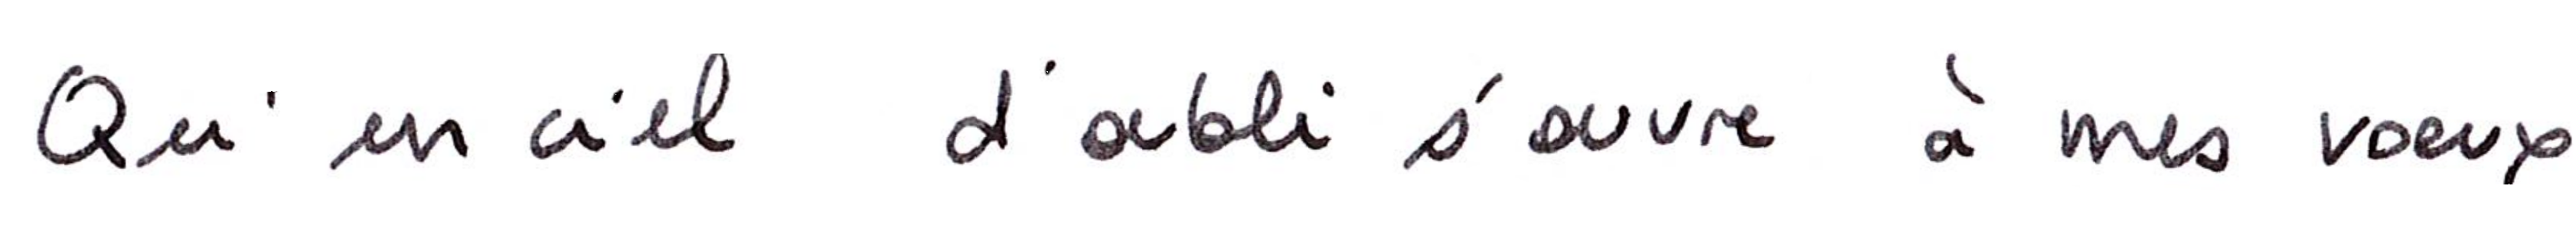 Qu'un ciel d'oubli s'ouvre à mes voeux